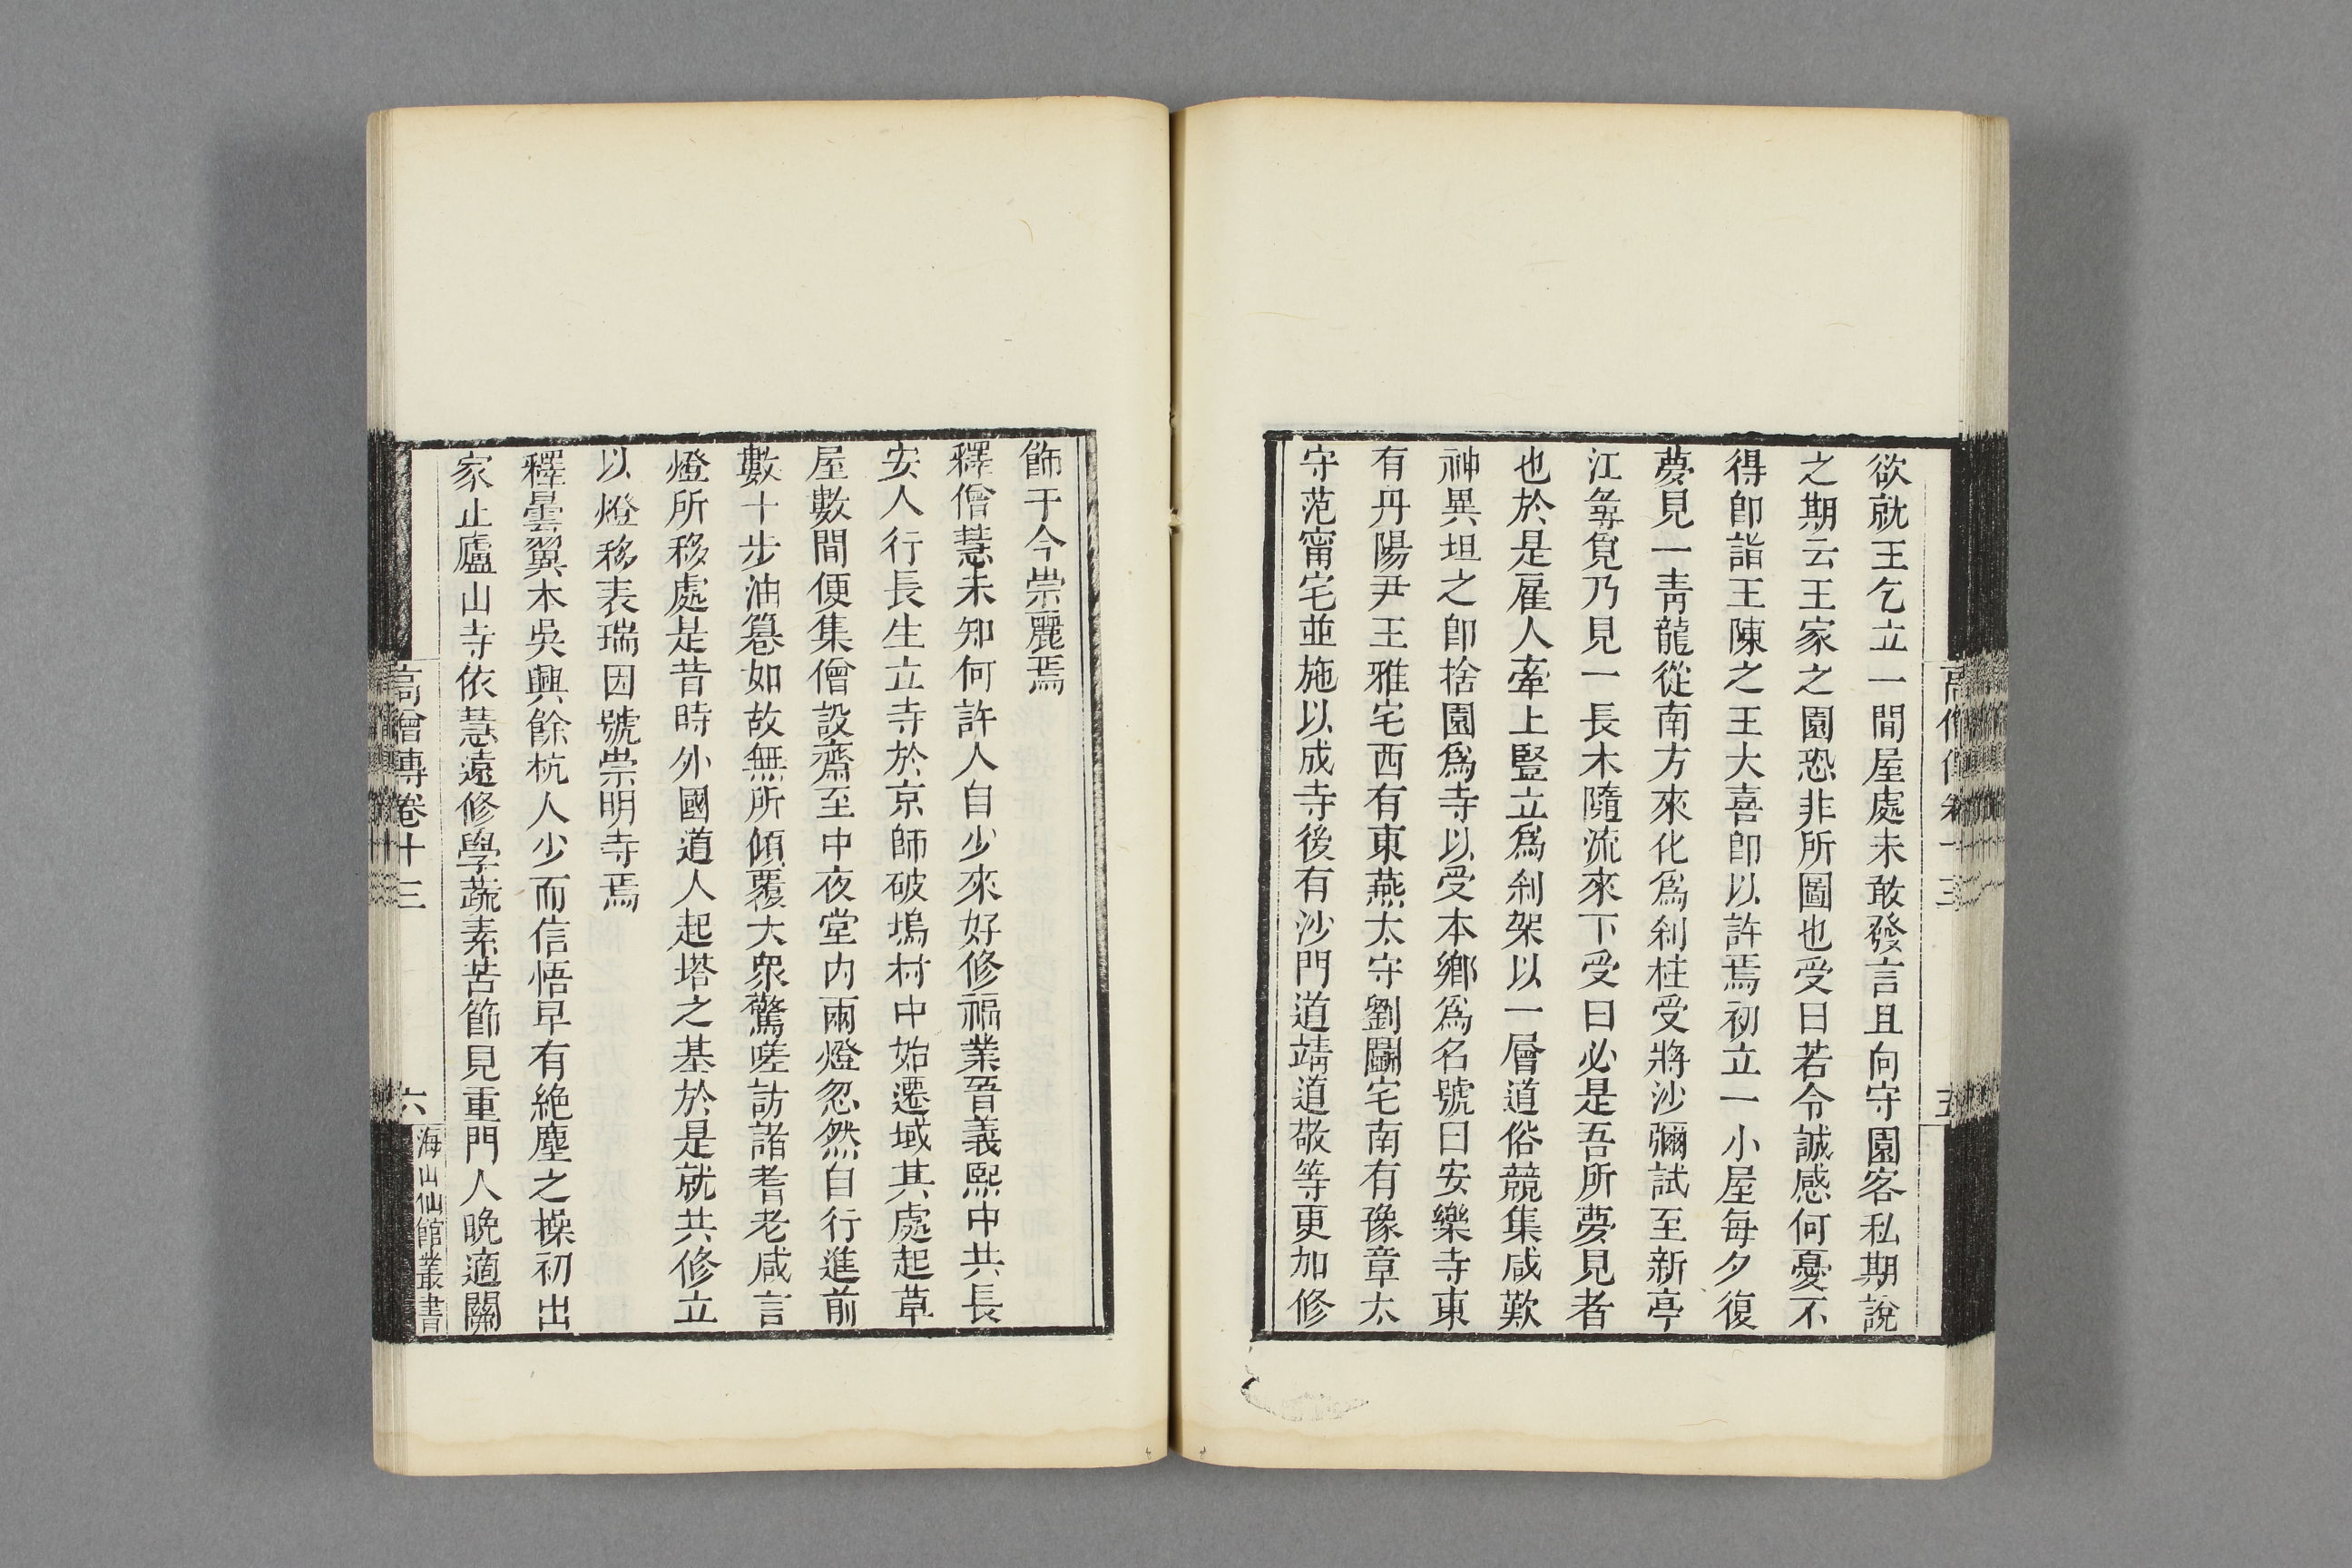 欲就王乞立一間屋處未敢發言且向守園客私期說
之期云王家之園恐非所圖也受曰若令誠感何憂不
得卽詣王陳之王大喜卽以許焉初立一小屋每夕復
夢見一靑龍從南方來化爲刹柱受將沙彌試至新亭
江尋覓乃見一長木隨流來下受曰必是吾所夢見者
也於是雇人牽上豎立爲刹架以一層道俗競集咸歎
神異坦之卽捨園爲寺以受本鄕爲名號曰安樂寺東
有丹陽尹王雅宅西有東燕太守劉鬭宅南有豫章太
守范甯宅並施以成寺後有沙門道靖道敬等更加修
飾于今崇麗焉
釋僧慧未知何許人自少來好修福業晉義熙中共長
安人行長生立寺於京師破塢村中始遷域其處起草
屋數間便集僧設齋至中夜堂内兩燈忽然自行進前
數十步油篹如故無所傾覆大衆驚嗟訪諸耆老咸言
燈所移處是昔時外國道人起塔之基於是就共修立
以燈移表瑞因號崇明寺焉
釋曇翼本吳興餘杭人少而信悟早有絕塵之操初出
家止廬山寺依慧遠修學蔬素苦節見重門人晚適關
高僧傳卷十三
六
海山仙館叢書